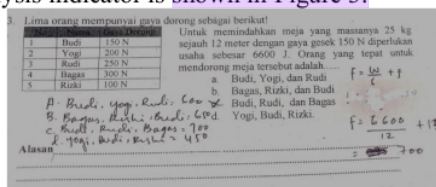 ysis indicator is shown in Figure 5.
3. Lima orang mempunyai gaya dorong sebagai berikut!
No Nama Gaya Dorong
1 Budi 150 N
2 Yogi 200 N
3 Rudi 250 N
4 Bagas 300 N
5 Rizki 100 N
Untuk memindahkan meja yang massanya 25 kg
sejauh 12 meter dengan gaya gesek 150 N diperlukan
usaha sebesar 6600 J. Orang yang tepat untuk
mendorong meja tersebut adalah....
a. Budi, Yogi, dan Rudi
b. Bagas, Rizki, dan Budi
Budi, Rudi, dan Bagas
d. Yogi, Budi, Rizki.
A. Budi, yogi, Rudi: 600
B. Bagas, Rizki, Budi:
c. Budi, Rudi, Bagas = 700
d. yogi, Budi, Rizki = 450
f = W +f
f = 6600
12
= 700
Alasan